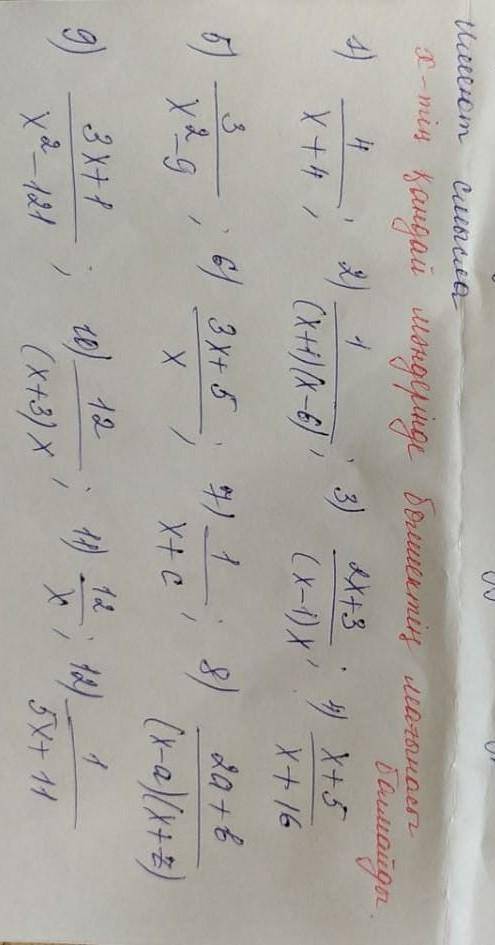 имеют смысла
х-тің қандай мәндерінде бөлшектің мағынасы
болмайды.
1) 4/(x+4); 2) 1/((x+1)(x-6)); 3) (2x+3)/((x-1)x); 4) (x+5)/(x+16)
5) 3/(x²-9); 6) (3x+5)/x; 7) 1/(x+c); 8) (2a+b)/((x-a)(x+z))
9) (3x+1)/(x²-121); 10) 12/((x+3)x); 11) 12/x; 12) 1/(5x+11)